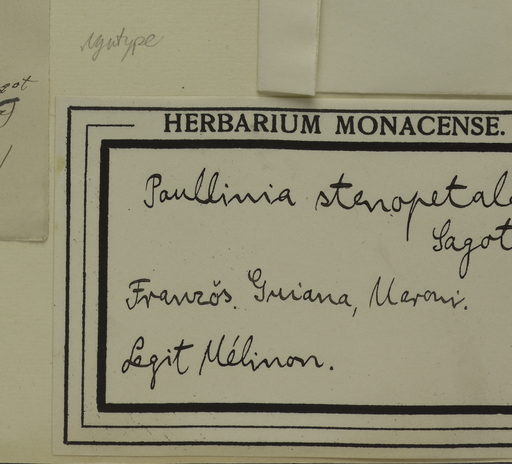 HERBARIUM MONACENSE.
Paullinia stenopetala
Sagot
Französ. Guiana, Maroni.
Legit Mélinon.